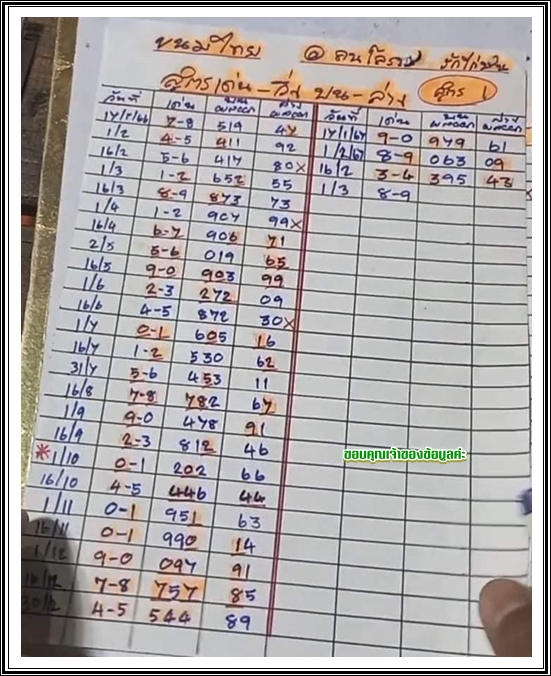 ขนมไทย
สูตรเด่น-วิ่ง บน-ล่าง สูตร 1
วันที่ เด่น บน ล่าง วันที่ เด่น บน ล่าง
17/1/66 7-8 519 47 17/1/67 9-0 979 61
1/2 4-5 411 92 1/2/67 8-9 063 09
16/2 5-6 417 80x 16/2 3-4 395 43
1/3 1-2 652 55 1/3 8-9
16/3 8-9 873 73
1/4 1-2 907 99x
16/4 6-7 906 71
2/5 5-6 019 65
16/5 9-0 903 99
1/6 2-3 272 09
16/6 4-5 872 30x
1/7 0-1 605 16
16/7 1-2 530 62
31/7 5-6 453 11
16/8 7-8 782 67
1/9 9-0 478 91
16/9 2-3 812 46
*1/10 0-1 202 66
16/10 4-5 446 44
1/11 0-1 951 63
16/11 0-1 990 14
1/12 9-0 097 91
16/12 7-8 757 85
4-5 544 89
ขอบคุณเจ้าของข้อมูลค่ะ